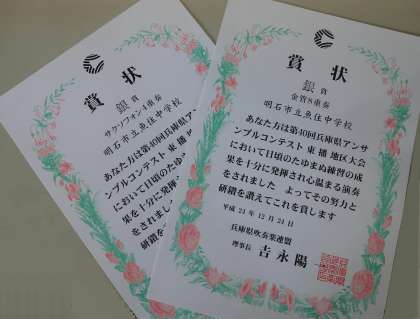 賞状
銀賞
サクソフォン4重奏
明石市立魚住中学校
あなた方は第40回兵庫県アンサ
ンブルコンテスト東播地区
において日頃のたゆまぬ
果を十分に発揮され
をされました
研鑽を讃え
賞状
銀賞
金管8重奏
明石市立魚住中学校
あなた方は第40回兵庫県アンサ
ンブルコンテスト東播地区大会
において日頃のたゆまぬ練習の成
果を十分に発揮され心温まる演奏
をされました よってその努力と
研鑽を讃えてこれを賞します
平成24年12月24日
兵庫県吹奏楽連盟
理事長 吉永陽